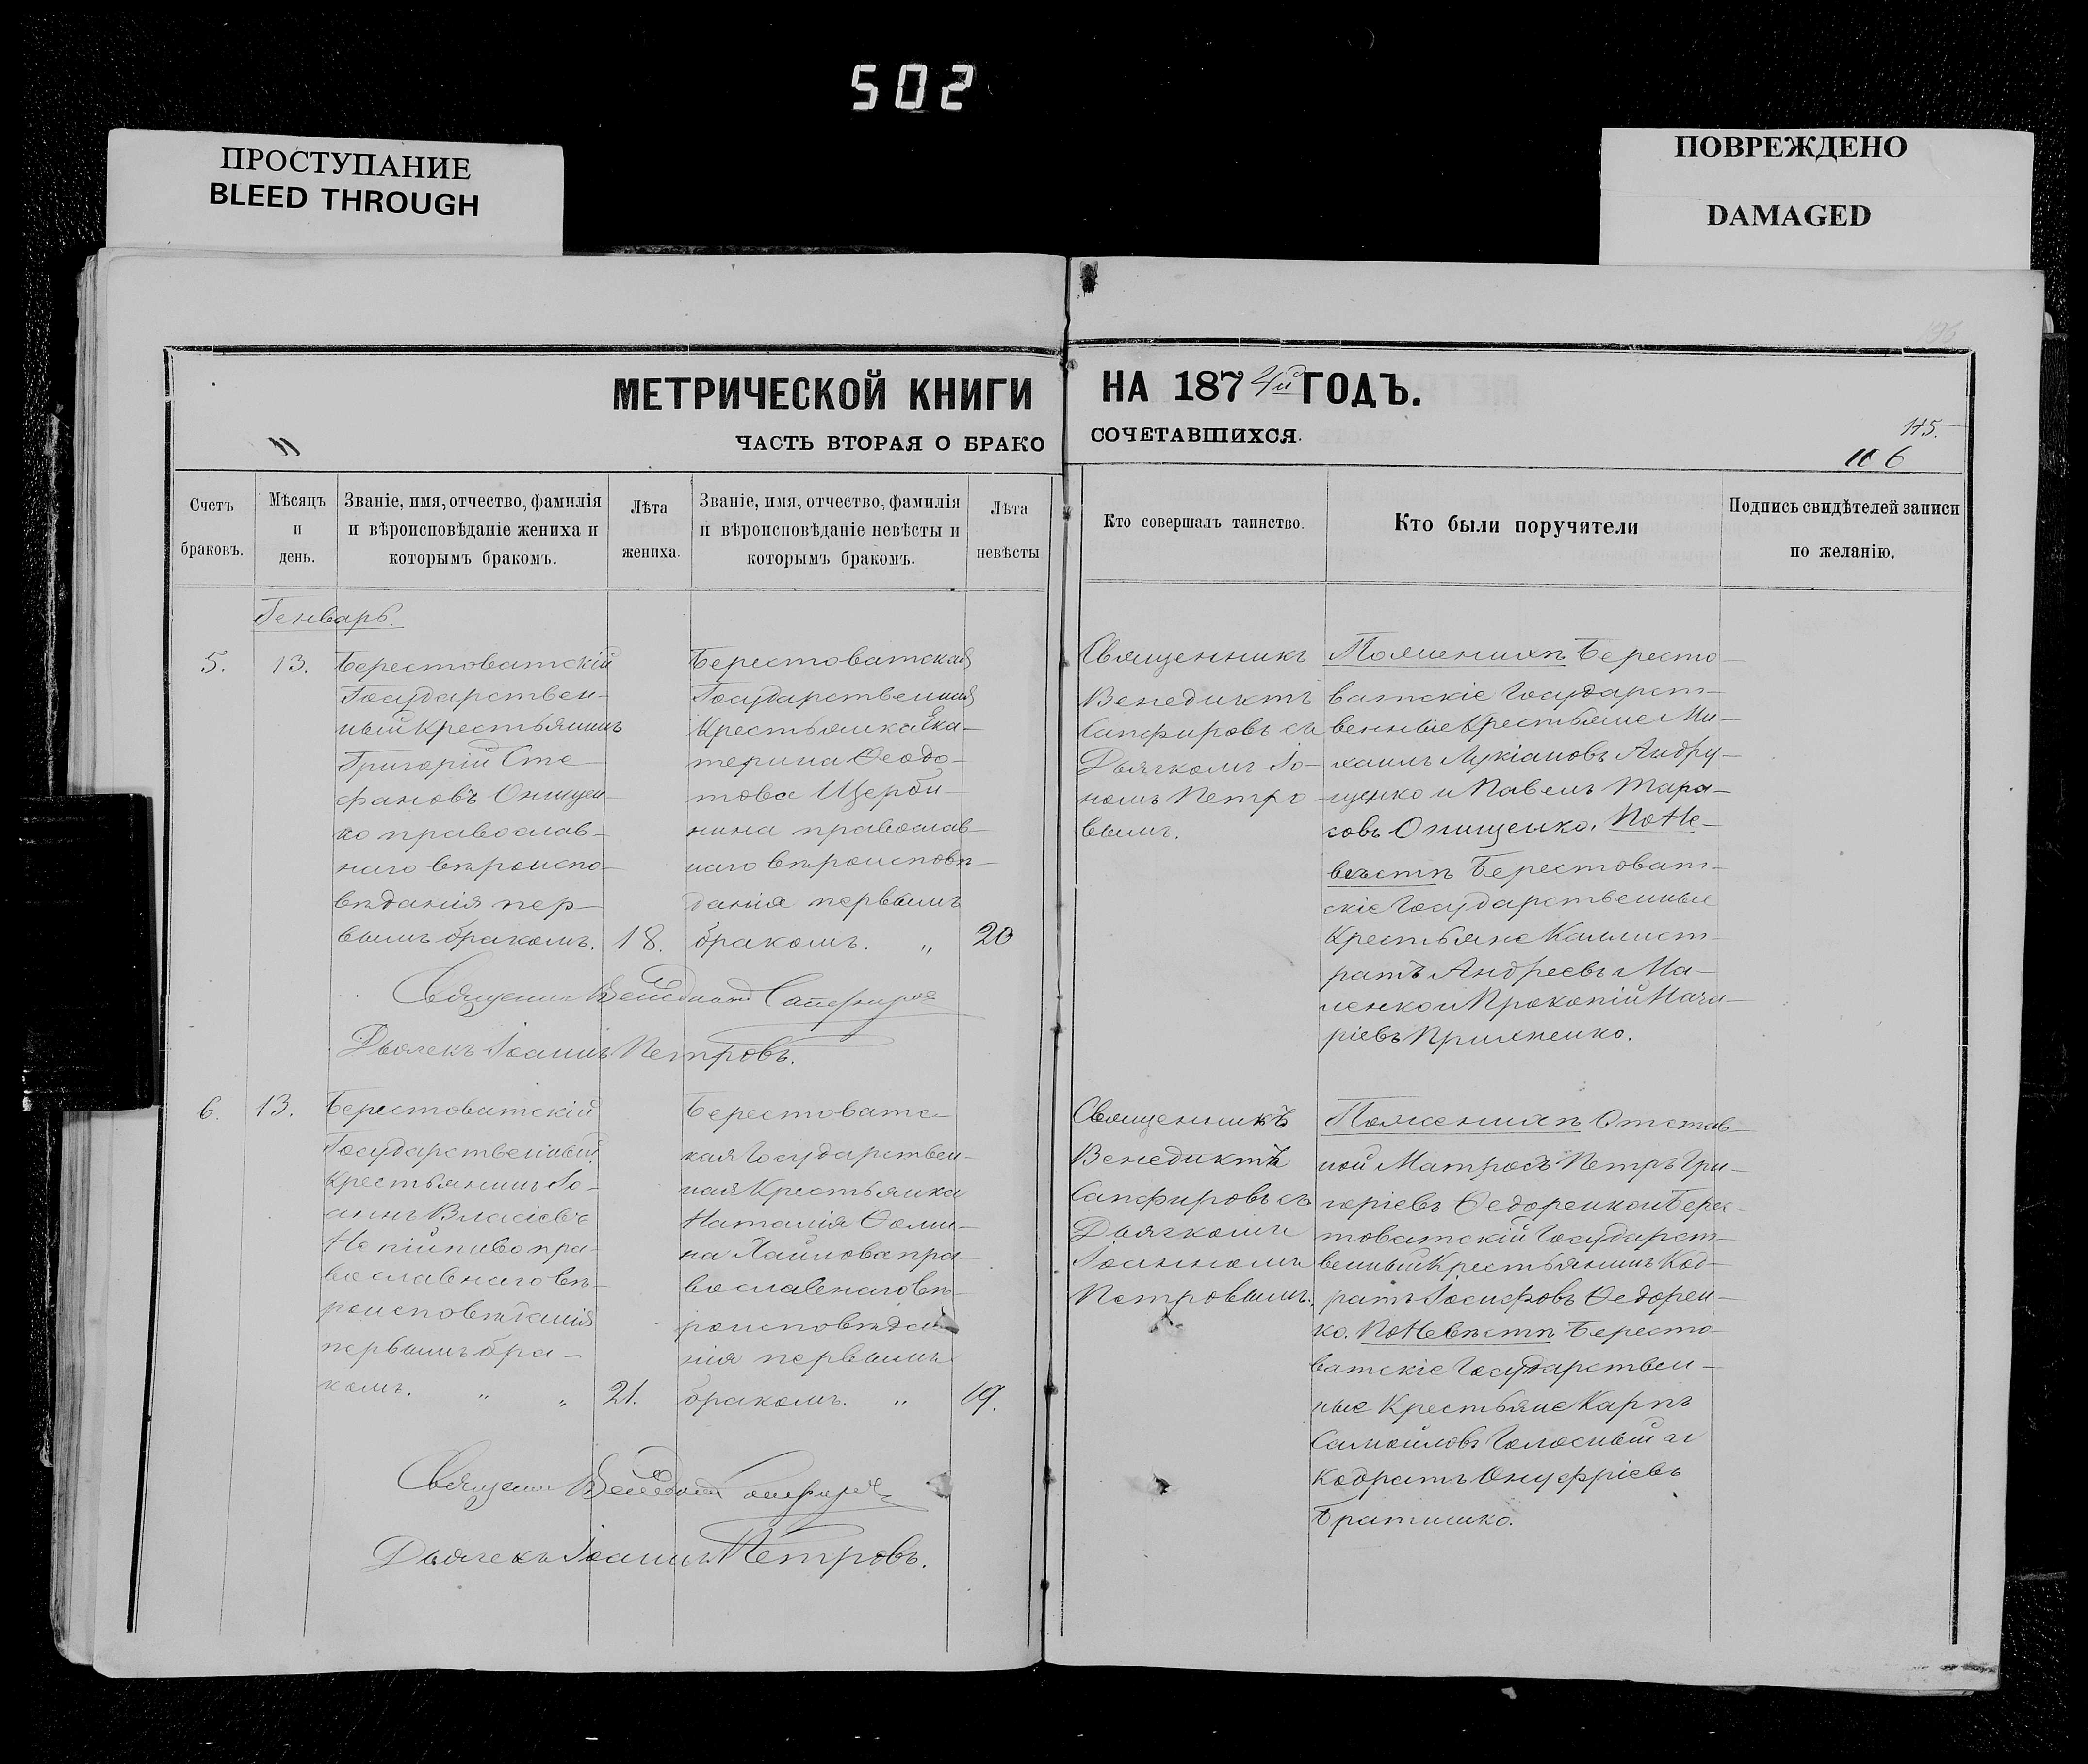 502
ПРОСТУПАНИЕ
BLEED THROUGH
ПОВРЕЖДЕНО
DAMAGED
МЕТРИЧЕСКОЙ КНИГИ
НА 1874й ГОДЪ.
11
ЧАСТЬ ВТОРАЯ О БРАКО
СОЧЕТАВШИХСЯ.
115.
116
Счетъ
браковъ.
Мѣсяцъ
и
день.
Званіе, имя, отчество, фамилія
и вѣроисповѣданіе жениха и
которымъ бракомъ.
Лѣта
жениха.
Званіе, имя, отчество, фамилія
и вѣроисповѣданіе невѣсты и
которымъ бракомъ.
Лѣта
невѣсты
Кто совершалъ таинство.
Кто были поручители
Подпись свидѣтелей записи
по желанію.
Генварь.
5.
13.
Берестоватскій
Государствен-
ный Крестьянинъ
Григорій Сте-
фановъ Онищен-
ко православ-
наго вѣроиспо-
вѣданія пер-
вымъ бракомъ.
18.
Берестоватская
Государственная
Крестьянка Ека-
терина Ѳеодо-
това Щерби-
нина православ-
наго вѣроисповѣ-
данія первымъ
бракомъ. „
20
Священникъ
Венедиктъ
Сапфировъ съ
Дьячкомъ Іо-
номъ Петро-
вымъ.
По женихѣ Бересто-
ватскіе Государст-
венные Крестьяне Ми-
хаилъ Лукіановъ Андру-
щенко и Павелъ Тара-
совъ Онищенко. По Не-
вѣстѣ Берестоват-
скіе Государственные
Крестьяне Каллист-
ратъ Андреевъ Ма-
ценко и Прокопій Мака-
ріевъ Прихненко.
Священникъ Венедиктъ Сапфировъ
Дьячекъ Іоаннъ Петровъ.
6.
13.
Берестоватскій
Государственный
Крестьянинъ Іо-
аннъ Власіевъ
Непійпиво пра-
вославнаго вѣ-
роисповѣданія
первымъ бра-
комъ. „ „
21.
Берестоватс-
кая Государствен-
ная Крестьянка
Наталія Ѳоми-
на Хаинова пра-
вославнаго вѣ-
роисповѣда-
нія первымъ
бракомъ. „
19.
Священникъ
Венедиктъ
Сапфировъ съ
Дьячкомъ
Іоанномъ
Петровымъ.
По женихѣ Отстав-
ной Матросъ Петръ Гри-
горіевъ Ѳедоренко и Берес-
товатскій Государст-
венный Крестьянинъ Код-
ратъ Іосифовъ Ѳедорен-
ко. По Невѣстѣ Бересто-
ватскіе Государствен-
ные Крестьяне Карпъ
Самойловъ Голосный и
Кодратъ Онуфріевъ
Братишко.
Священникъ Венедиктъ Сапфировъ
Дьячекъ Іоаннъ Петровъ.